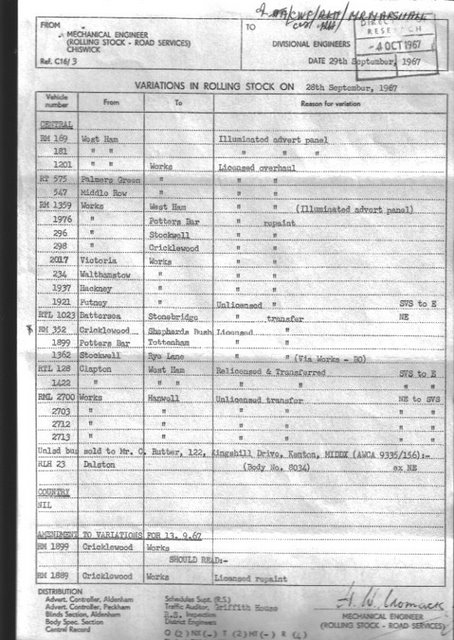 FROM
MECHANICAL ENGINEER
(ROLLING STOCK - ROAD SERVICES)
CHISWICK
Ref. C16/3
TO
DIVISIONAL ENGINEERS
DIRECT
RESEARCH
-4 OCT 1967
DATE 29th September, 1967
VARIATIONS IN ROLLING STOCK ON 28th September, 1967
Vehicle number From To Reason for variation
CENTRAL
RM 169 West Ham Illuminated advert panel
181 " " " " "
1201 " " Works Licensed overhaul
RT 575 Palmers Green " " "
547 Middle Row " " "
RM 1359 Works West Ham " " (Illuminated advert panel)
1976 " Potters Bar " repaint
296 " Stockwell " "
298 " Cricklewood " "
2017 Victoria Works " "
234 Walthamstow " " "
1937 Hackney " " "
1921 Putney " Unlicensed " SVS to E
RTL 1023 Battersea Stonebridge " transfer NE
RM 352 Cricklewood Shepherds Bush Licensed "
1899 Potters Bar Tottenham " "
1362 Stockwell Rye Lane " " (Via Works - BO)
RTL 128 Clapton West Ham Relicensed & Transferred SVS to E
1422 " " " " " " "
RML 2700 Works Hanwell Unlicensed transfer NE to SVS
2703 " " " " "
2712 " " " " "
2713 " " " " "
Unlsd bus sold to Mr. C. Rutter, 122, Kingshill Drive, Kenton, MIDDX (AWCA 9335/156):-
RLH 23 Dalston (Body No. 8034) ex NE
COUNTRY
NIL
AMENDMENT TO VARIATIONS FOR 13. 9.67
RM 1899 Cricklewood Works
SHOULD READ:-
RM 1889 Cricklewood Works Licensed repaint
DISTRIBUTION
Advert. Controller, Aldenham
Advert. Controller, Peckham
Blinds Section, Aldenham
Body Spec. Section
Central Record
Schedules Supt. (R.S.)
Traffic Auditor, Griffith House
D.S. Inspection
District Engineers
MECHANICAL ENGINEER
(ROLLING STOCK - ROAD SERVICES)